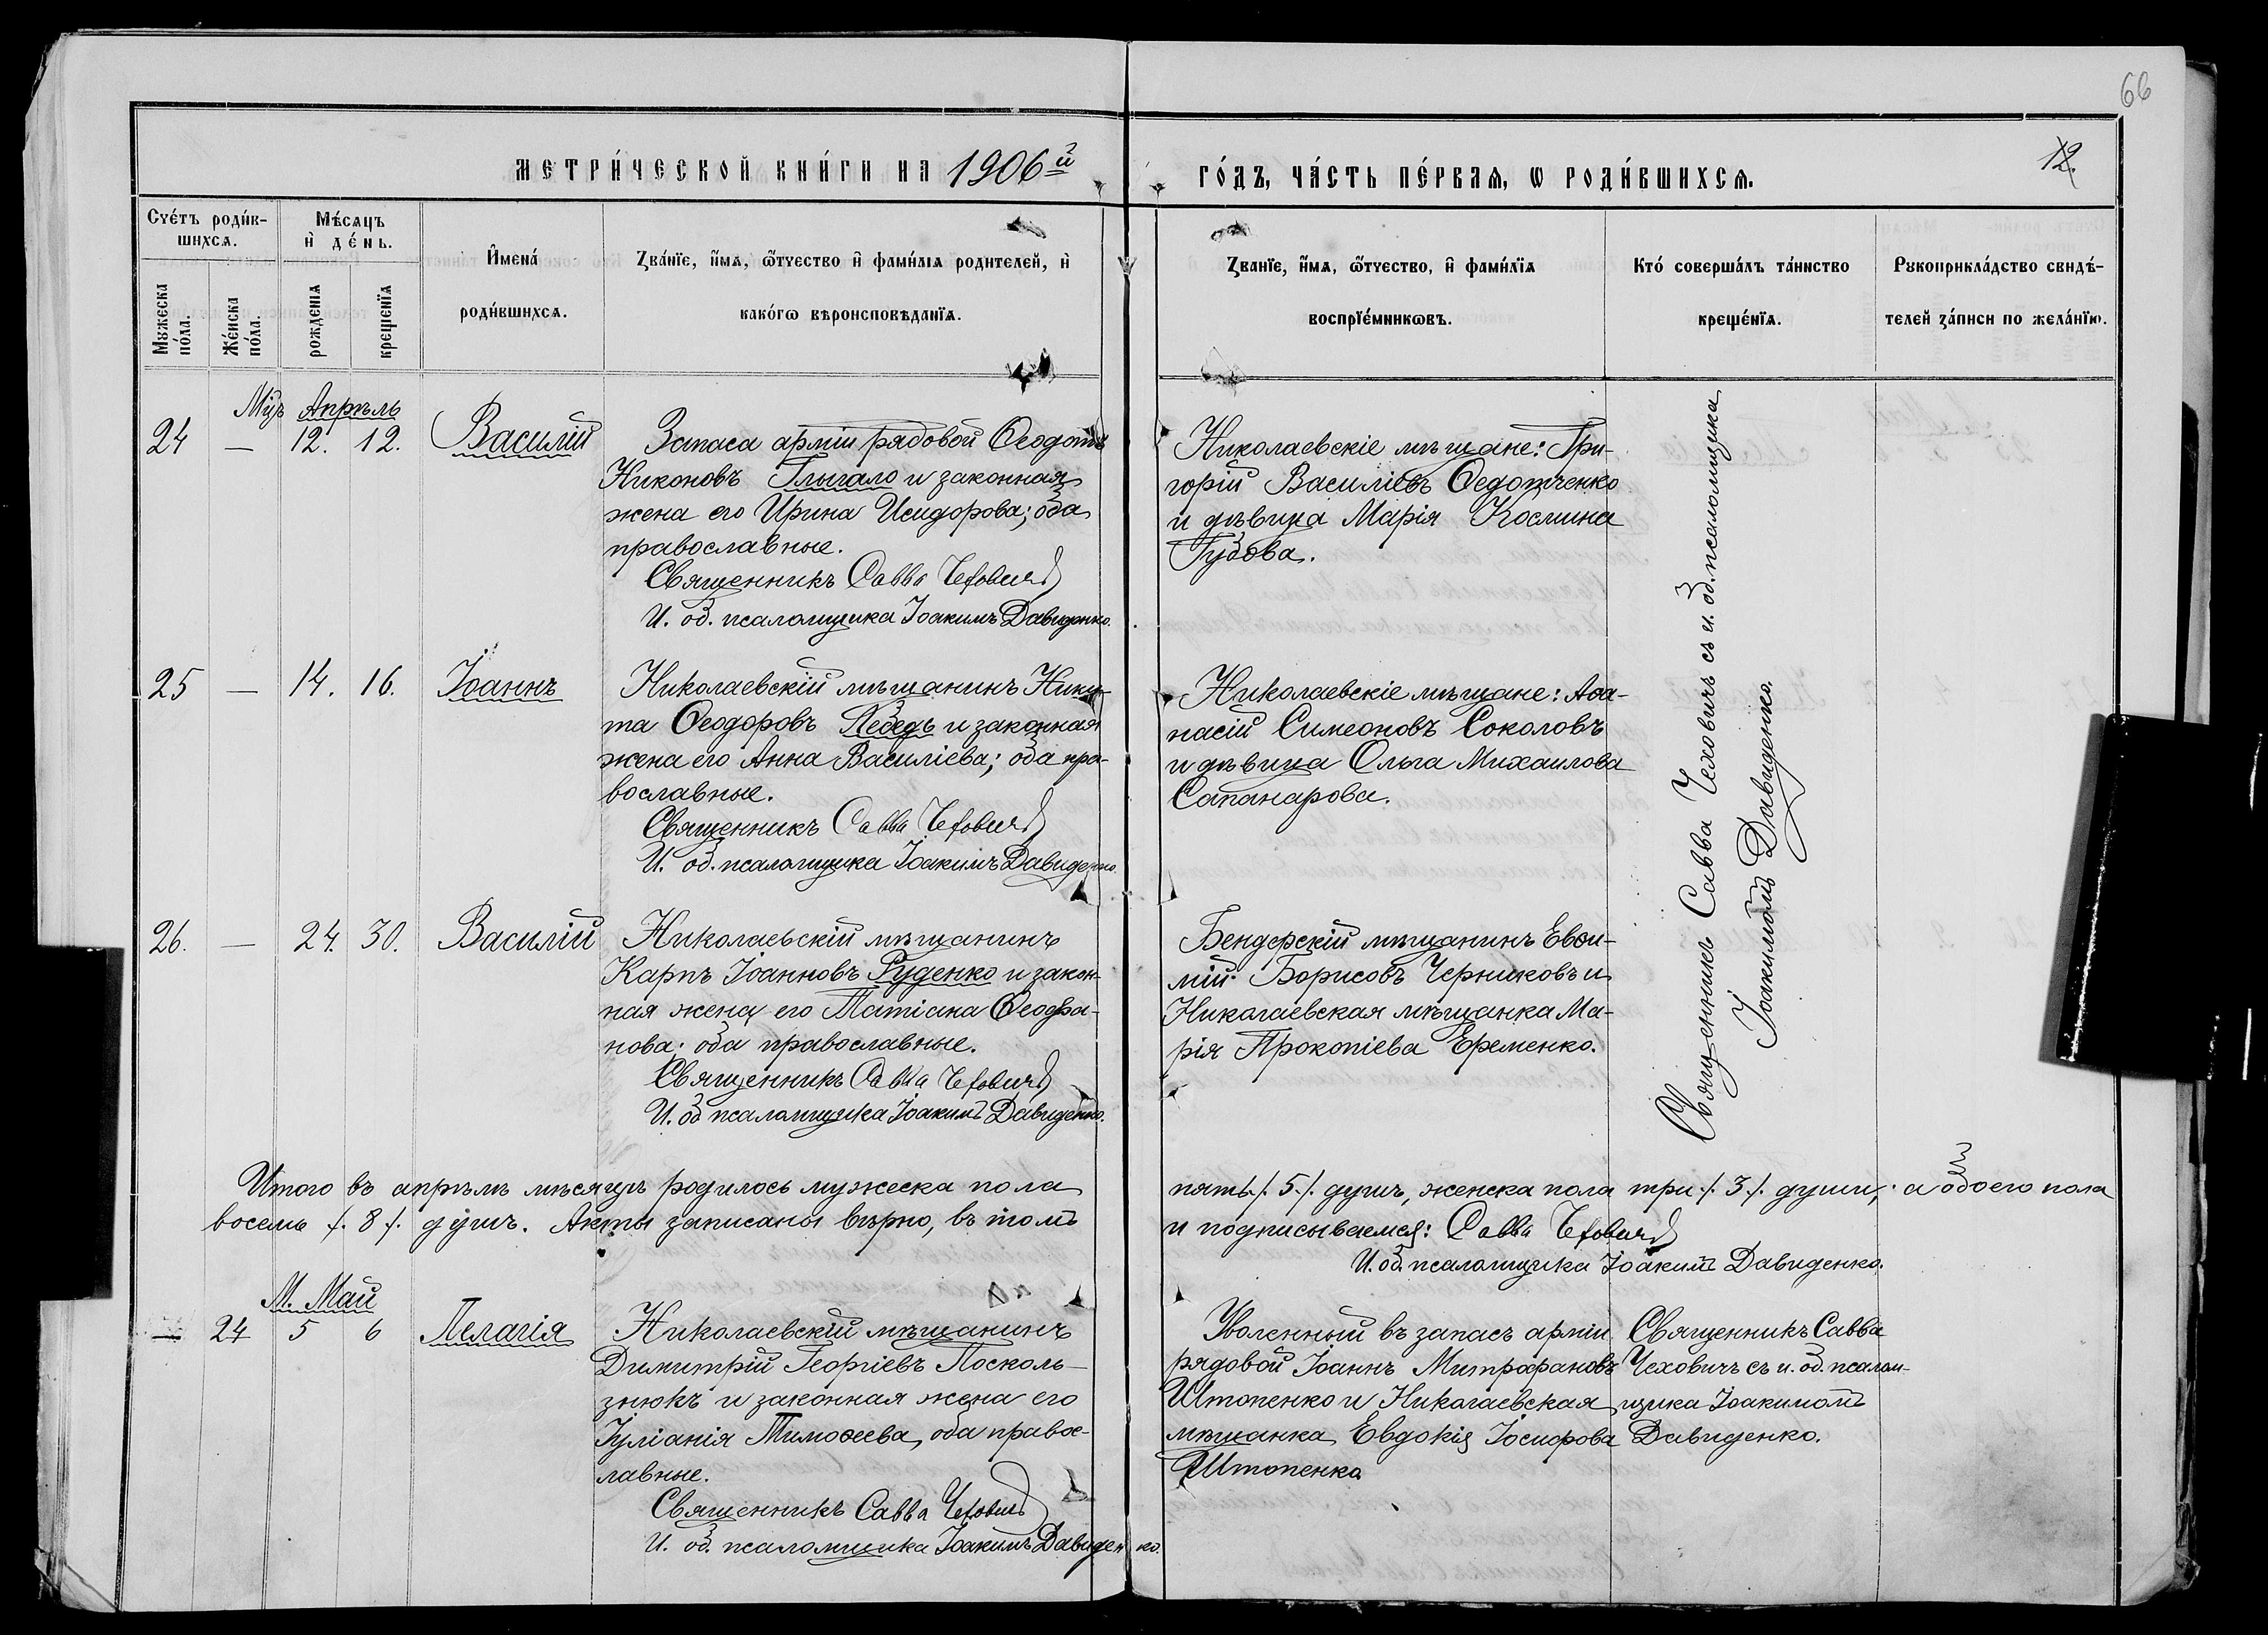 66
12.
МЕТРИ́ЧЕСКОЙ КНИ́ГИ НА 1906й
ГО́ДЪ, ЧА́СТЬ ПЕ́РВАЯ, Ѡ РОДИ́ВШИХСЯ.
Сче́тъ роди́в-
шихся.
Му́жеска
по́ла.
Же́нска
по́ла.
Мѣ́сяцъ
и҆ де́нь.
рожденія
крещенїѧ
И҆мена́
роди́вшихся.
Зва́нїе, и҆́мя, ѻ҆́тчество и҆ фами́лїя родителей, и҆
како́гѡ вѣроисповѣданїя.
Званїе, и҆́мя, ѻ҆́тчество, и҆ фами́лїя
воспрїе́мникѡвъ.
Кто́ соверша́лъ та́инство
креще́нїя.
Рукоприкла́дство свидѣ́-
телей за́писи по жела́нїю.
Мцъ Апрѣль
24 — 12. 12. Василій
Запаса арміи рядовой Ѳеодотъ
Никоновъ Глыгало и законная
жена его Ирина Исидорова; оба
православные.
Священникъ Савва Чеховичъ
И. об. псаломщика Іоакимъ Давиденко.
Николаевскіе мѣщане: Гри-
горій Василіевъ Ѳедотченко
и дѣвица Марія Космина
Губова.
Священникъ Савва Чеховичъ съ и. об. псаломщика
Іоакимомъ Давиденко.
25 — 14. 16. Іоаннъ
Николаевскій мѣщанинъ Ники-
та Ѳеодоровъ Лебедь и законная
жена его Анна Василіева; оба пра-
вославные.
Священникъ Савва Чеховичъ
И. об. псаломщика Іоакимъ Давиденко.
Николаевскіе мѣщане: Аѳа-
насій Симеоновъ Соколовъ
и дѣвица Ольга Михаилова
Сапанарова.
26. — 24. 30. Василій
Николаевскій мѣщанинъ
Карпъ Іоанновъ Руденко и закон-
ная жена его Татіана Ѳеофа-
нова; оба православные.
Священникъ Савва Чеховичъ
И. об псаломщика Іоакимъ Давиденко.
Бендерскій мѣщанинъ Евѳи-
мій Борисовъ Черниковъ и
Николаевская мѣщанка Ма-
рія Прокопіева Еременко.
Итого въ апрѣлѣ мѣсяцѣ родилось мужеска пола
пять ./. 5 ./. душъ, женска пола три ./. 3 ./. души, а обоего пола
восемь ./. 8 ./. душъ. Акты записаны вѣрно, въ томъ
и подписываемся: Савва Чеховичъ
И. об. псаломщика Іоакимъ Давиденко.
М. Май
— 24 5 6 Пелагія
Николаевскій мѣщанинъ
Димитрій Георгіевъ Посколь-
знюкъ и законная жена его
Іуліанія Тимоѳеева, оба правос-
лавные.
Священникъ Савва Чеховичъ
И. об. псаломщика Іоакимъ Давиденко.
Уволенный въ запасъ арміи
рядовой Іоаннъ Митрофановъ
Штопенко и Николаевская
мѣщанка Евдокія Іосифова
Штопенко
Священникъ Савва
Чеховичъ съ и. об. псалом-
щика Іоакимомъ
Давиденко.